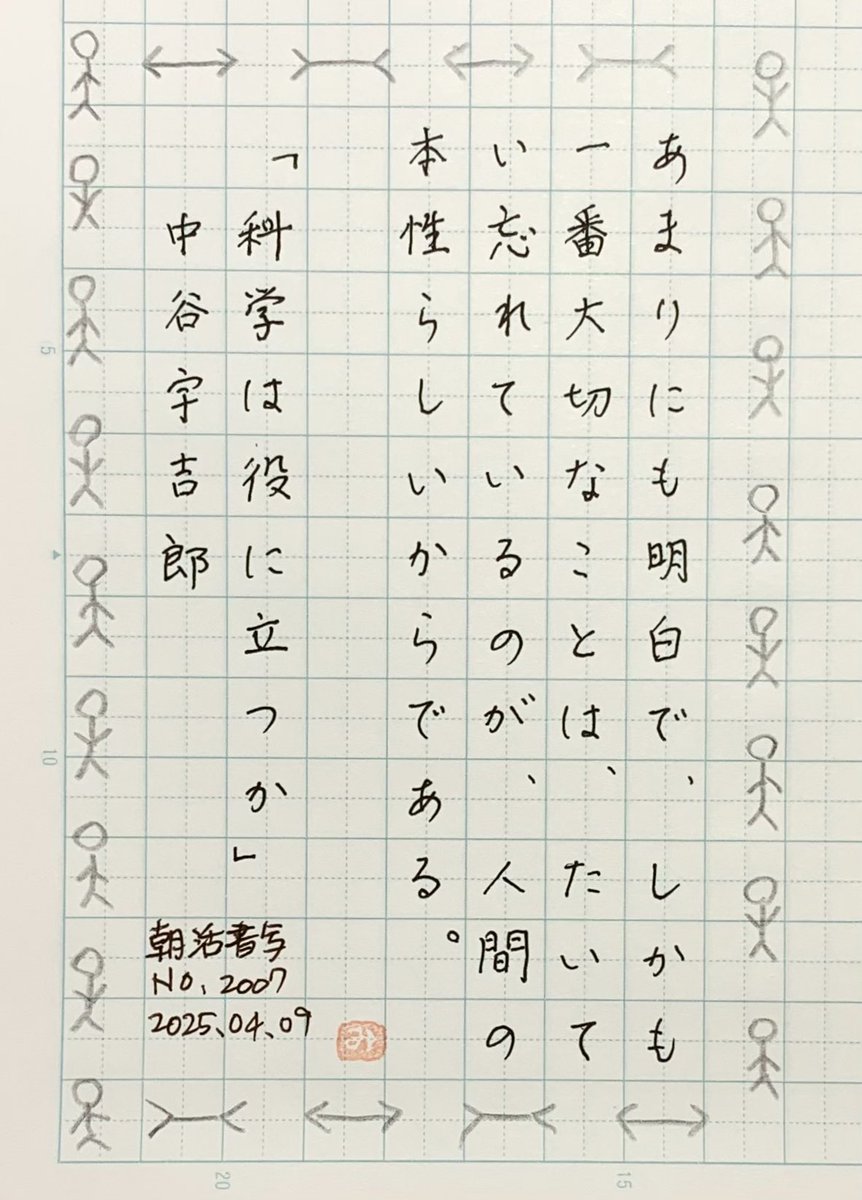 あまりにも明白で、しかも
一番大切なことは、たいて
い忘れているのが、人間の
本性らしいからである。
「科学は役に立つか」
中谷宇吉郎
朝活書写
No. 2007
2025.04.09
5
10
15
20